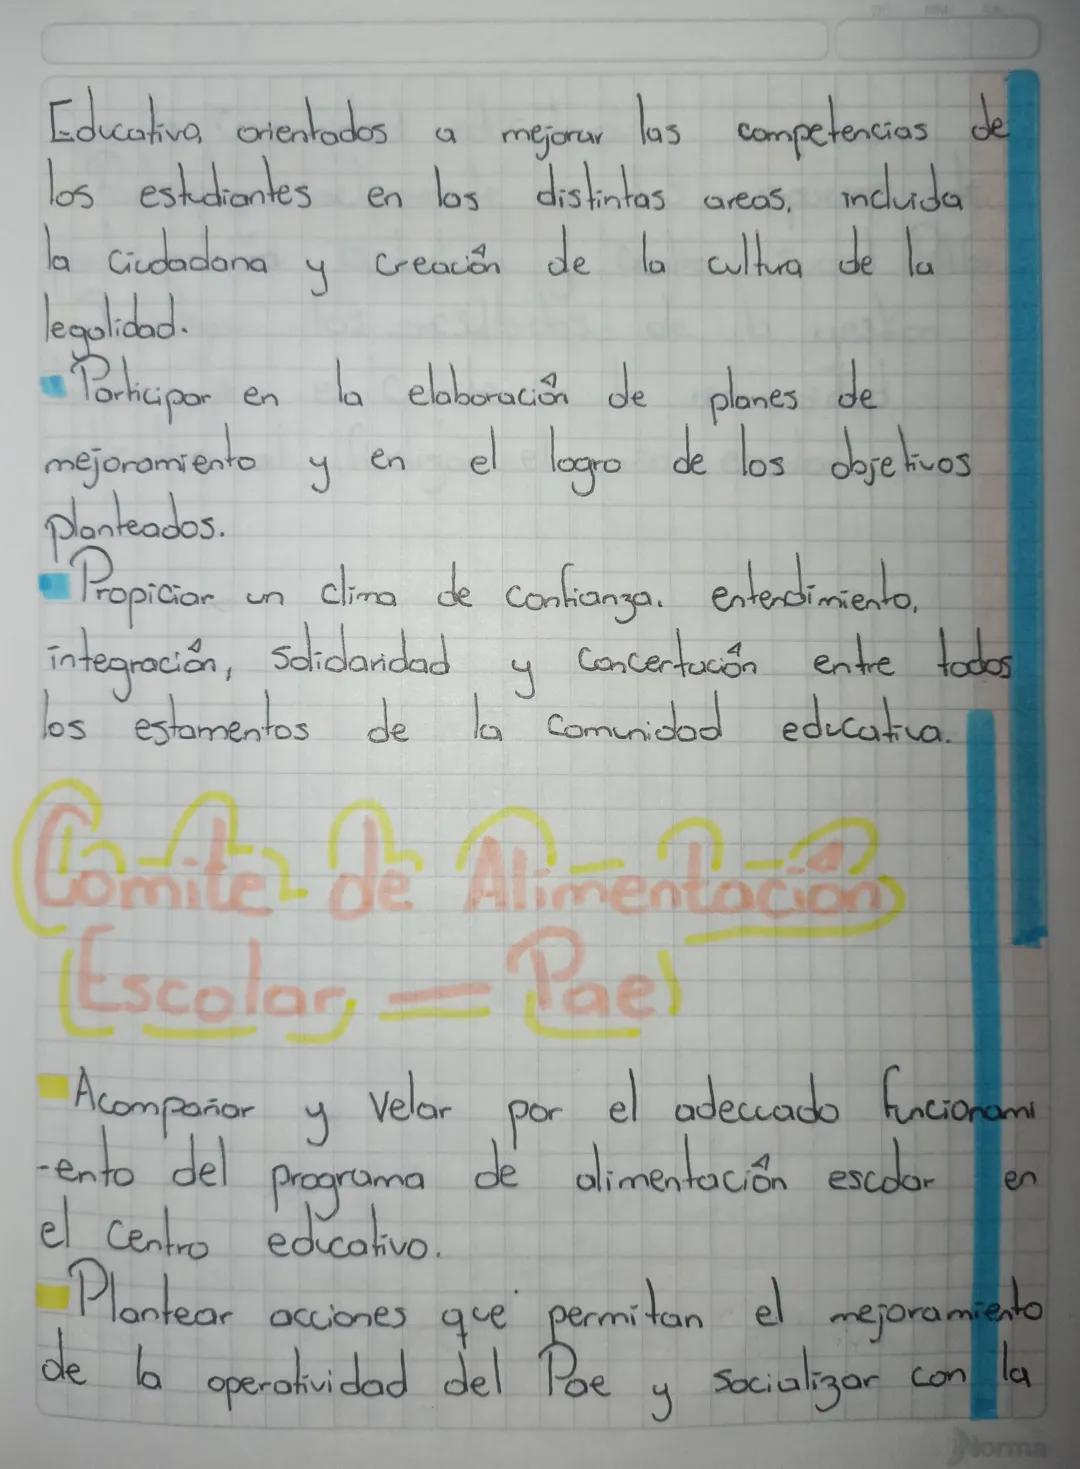 Educativa, orientados a mejorar las competencias de
los estudiantes en las distintas areas, incluida
la ciudadana y creación de la cultura de la
legalidad.
Participar en la elaboración de planes de
mejoramiento y en el logro de los objetivos
planteados.
Propiciar un clima de confianza. entendimiento,
integración, solidaridad y concertación entre todos
los estamentos de la comunidad educativa.
Comite de Alimentación
Escolar = Pae
Acompañar y Velar por el adecuado funcionami
-ento del programa de alimentación escolar en
el centro educativo.
Plantear acciones que permitan el mejoramiento
de la operatividad del Pae y socializar con la
Norma